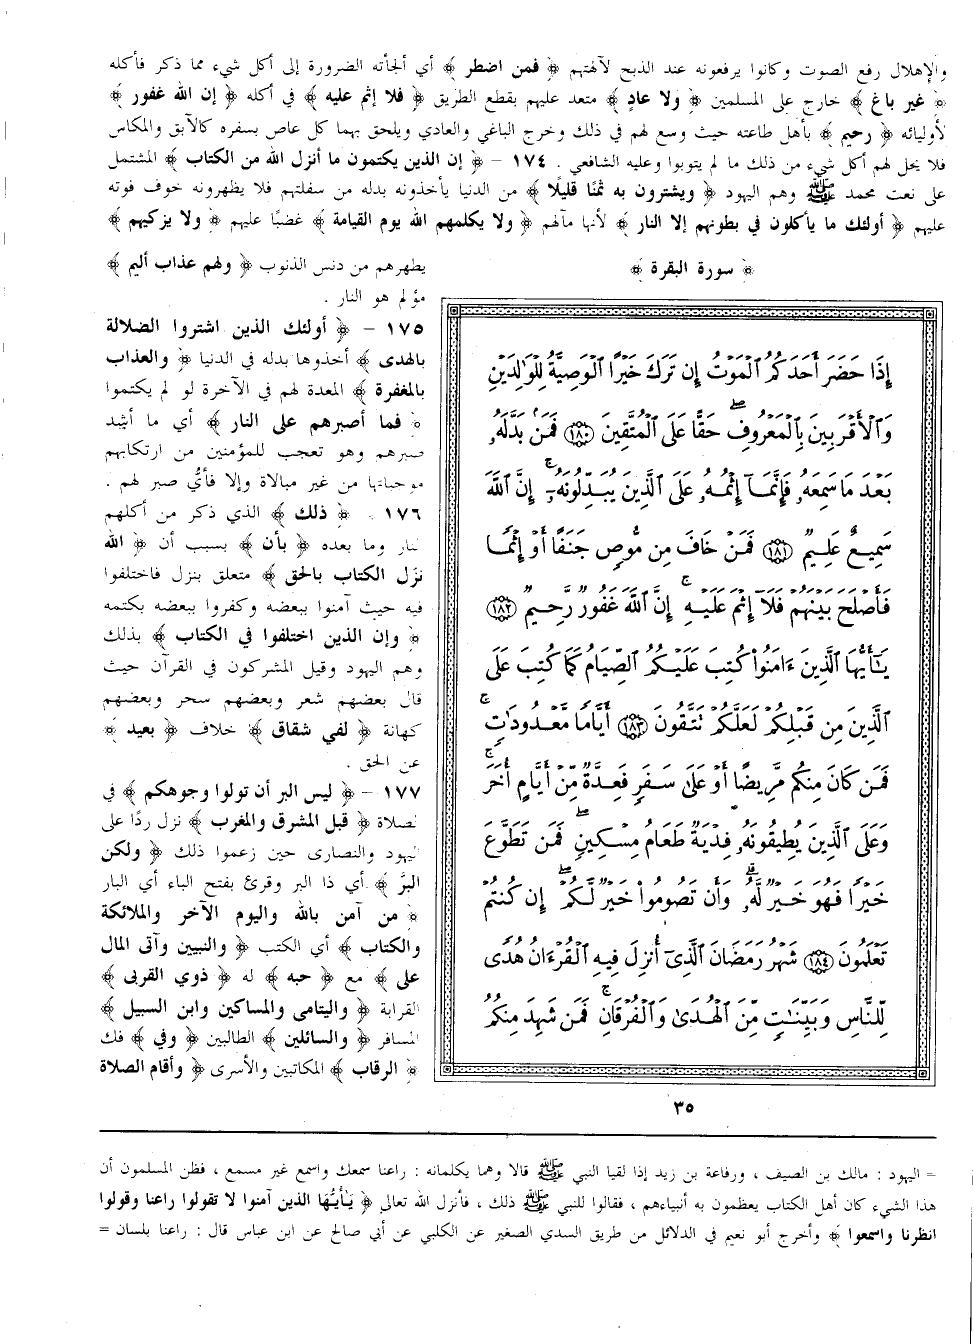 والإهلال رفع الصوت وكانوا يرفعونه عند الذبح لآلهتهم ﴿ فمن اضطر ﴾ أي ألجأته الضرورة إلى أكل شيء مما ذكر فأكله
﴿ غير باغ ﴾ خارج على المسلمين ﴿ ولا عادٍ ﴾ متعد عليهم بقطع الطريق ﴿ فلا إثم عليه ﴾ في أكله ﴿ إن الله غفور ﴾
لأوليائه ﴿ رحيم ﴾ بأهل طاعته حيث وسع لهم في ذلك وخرج الباغي والعادي ويلحق بهما كل عاص بسفره كالآبق والمكاس
فلا يحل لهم أكل شيء من ذلك ما لم يتوبوا وعليه الشافعي . ١٧٤ - ﴿ إن الذين يكتمون ما أنزل الله من الكتاب ﴾ المشتمل
على نعت محمد ﷺ وهم اليهود ﴿ ويشترون به ثمنًا قليلًا ﴾ من الدنيا يأخذونه بدله من سفلتهم فلا يظهرونه خوف فوته
عليهم ﴿ أولئك ما يأكلون في بطونهم إلا النار ﴾ لأنها مآلهم ﴿ ولا يكلمهم الله يوم القيامة ﴾ غضبًا عليهم ﴿ ولا يزكيهم ﴾
﴿ سورة البقرة ﴾
يطهرهم من دنس الذنوب ﴿ ولهم عذاب أليم ﴾
مؤلم هو النار .
١٧٥ - ﴿ أولئك الذين اشتروا الضلالة
بالهدى ﴾ أخذوها بدله في الدنيا ﴿ والعذاب
بالمغفرة ﴾ المعدة لهم في الآخرة لو لم يكتموا
﴿ فما أصبرهم على النار ﴾ أي ما أشد
صبرهم وهو تعجب للمؤمنين من ارتكابهم
موجباتها من غير مبالاة وإلا فأيُّ صبر لهم .
١٧٦ - ﴿ ذلك ﴾ الذي ذكر من أكلهم
النار وما بعده ﴿ بأن ﴾ بسبب أن ﴿ الله
نزّل الكتاب بالحق ﴾ متعلق بنزل فاختلفوا
فيه حيث آمنوا ببعضه وكفروا ببعضه بكتمه
﴿ وإن الذين اختلفوا في الكتاب ﴾ بذلك
وهم اليهود وقيل المشركون في القرآن حيث
قال بعضهم شعر وبعضهم سحر وبعضهم
كهانة ﴿ لفي شقاق ﴾ خلاف ﴿ بعيد ﴾
عن الحق .
١٧٧ - ﴿ ليس البر أن تولوا وجوهكم ﴾ في
الصلاة ﴿ قبل المشرق والمغرب ﴾ نزل ردًا على
اليهود والنصارى حين زعموا ذلك ﴿ ولكن
البرَّ ﴾ أي ذا البر وقرئ بفتح الباء أي البار
﴿ من آمن بالله واليوم الآخر والملائكة
والكتاب ﴾ أي الكتب ﴿ والنبيين وآتى المال
على ﴾ مع ﴿ حبه ﴾ له ﴿ ذوي القربى ﴾
القرابة ﴿ واليتامى والمساكين وابن السبيل ﴾
المسافر ﴿ والسائلين ﴾ الطالبين ﴿ وفي ﴾ فك
﴿ الرقاب ﴾ المكاتبين والأسرى ﴿ وأقام الصلاة
إِذَا حَضَرَ أَحَدَكُمُ ٱلْمَوْتُ إِن تَرَكَ خَيْرًا ٱلْوَصِيَّةُ لِلْوَٰلِدَيْنِ
وَٱلْأَقْرَبِينَ بِٱلْمَعْرُوفِ ۖ حَقًّا عَلَى ٱلْمُتَّقِينَ ١٨٠ فَمَنۢ بَدَّلَهُۥ
بَعْدَ مَا سَمِعَهُۥ فَإِنَّمَآ إِثْمُهُۥ عَلَى ٱلَّذِينَ يُبَدِّلُونَهُۥٓ ۚ إِنَّ ٱللَّهَ
سَمِيعٌ عَلِيمٌ ١٨١ فَمَنْ خَافَ مِن مُّوصٍ جَنَفًا أَوْ إِثْمًا
فَأَصْلَحَ بَيْنَهُمْ فَلَآ إِثْمَ عَلَيْهِ ۚ إِنَّ ٱللَّهَ غَفُورٌ رَّحِيمٌ ١٨٢
يَٰٓأَيُّهَا ٱلَّذِينَ ءَامَنُوا۟ كُتِبَ عَلَيْكُمُ ٱلصِّيَامُ كَمَا كُتِبَ عَلَى
ٱلَّذِينَ مِن قَبْلِكُمْ لَعَلَّكُمْ تَتَّقُونَ ١٨٣ أَيَّامًا مَّعْدُودَٰتٍ ۚ
فَمَن كَانَ مِنكُم مَّرِيضًا أَوْ عَلَىٰ سَفَرٍ فَعِدَّةٌ مِّنْ أَيَّامٍ أُخَرَ ۚ
وَعَلَى ٱلَّذِينَ يُطِيقُونَهُۥ فِدْيَةٌ طَعَامُ مِسْكِينٍ ۖ فَمَن تَطَوَّعَ
خَيْرًا فَهُوَ خَيْرٌ لَّهُۥ ۚ وَأَن تَصُومُوا۟ خَيْرٌ لَّكُمْ ۖ إِن كُنتُمْ
تَعْلَمُونَ ١٨٤ شَهْرُ رَمَضَانَ ٱلَّذِىٓ أُنزِلَ فِيهِ ٱلْقُرْءَانُ هُدًى
لِّلنَّاسِ وَبَيِّنَٰتٍ مِّنَ ٱلْهُدَىٰ وَٱلْفُرْقَانِ ۚ فَمَن شَهِدَ مِنكُمُ
٣٥
= اليهود : مالك بن الصيف ، ورفاعة بن زيد إذا لقيا النبي ﷺ قالا وهما يكلمانه : راعنا سمعك واسمع غير مسمع ، فظن المسلمون أن
هذا الشيء كان أهل الكتاب يعظمون به أنبياءهم ، فقالوا للنبي ﷺ ذلك ، فأنزل الله تعالى ﴿ يٰأيُّهَا الذين آمنوا لا تقولوا راعنا وقولوا
انظرنا واسمعوا ﴾ وأخرج أبو نعيم في الدلائل من طريق السدي الصغير عن الكلبي عن أبي صالح عن ابن عباس قال : راعنا بلسان =